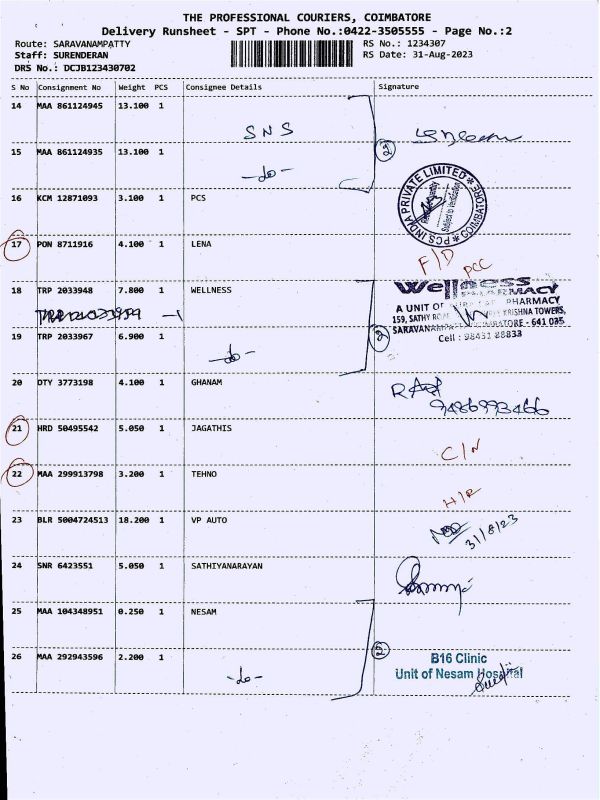 THE PROFESSIONAL COURIERS, COIMBATORE
Delivery Runsheet - SPT - Phone No.:0422-3505555 - Page No.:2
Route: SARAVANAMPATTY
RS No.: 1234307
Staff: SURENDERAN
RS Date: 31-Aug-2023
DRS No.: DCJB123430702
S No Consignment No Weight PCS Consignee Details Signature
14 MAA 861124945 13.100 1
SNS
2
15 MAA 861124935 13.100 1
-do-
16 KCM 12871093 3.100 1 PCS
PCS INDIA PRIVATE LIMITED * COIMBATORE *
Subject to Verification
17 PON 8711916 4.100 1 LENA
F/D
PCC
18 TRP 2033948 7.800 1 WELLNESS
Wellness
PHARMACY
A UNIT OF PHARMACY
159, SATHY KRISHNA TOWERS,
- 641 035
Cell : 98431 88833
19 TRP 2033967 6.900 1
-do-
2
20 DTY 3773198 4.100 1 GHANAM
9486993466
21 HRD 50495542 5.050 1 JAGATHIS
C/N
22 MAA 299913798 3.200 1 TEHNO
H/R
23 BLR 5004724513 18.200 1 VP AUTO
31/8/23
24 SNR 6423551 5.050 1 SATHIYANARAYAN
25 MAA 104348951 0.250 1 NESAM
2
26 MAA 292943596 2.200 1
-do-
B16 Clinic
Unit of Nesam Hospital